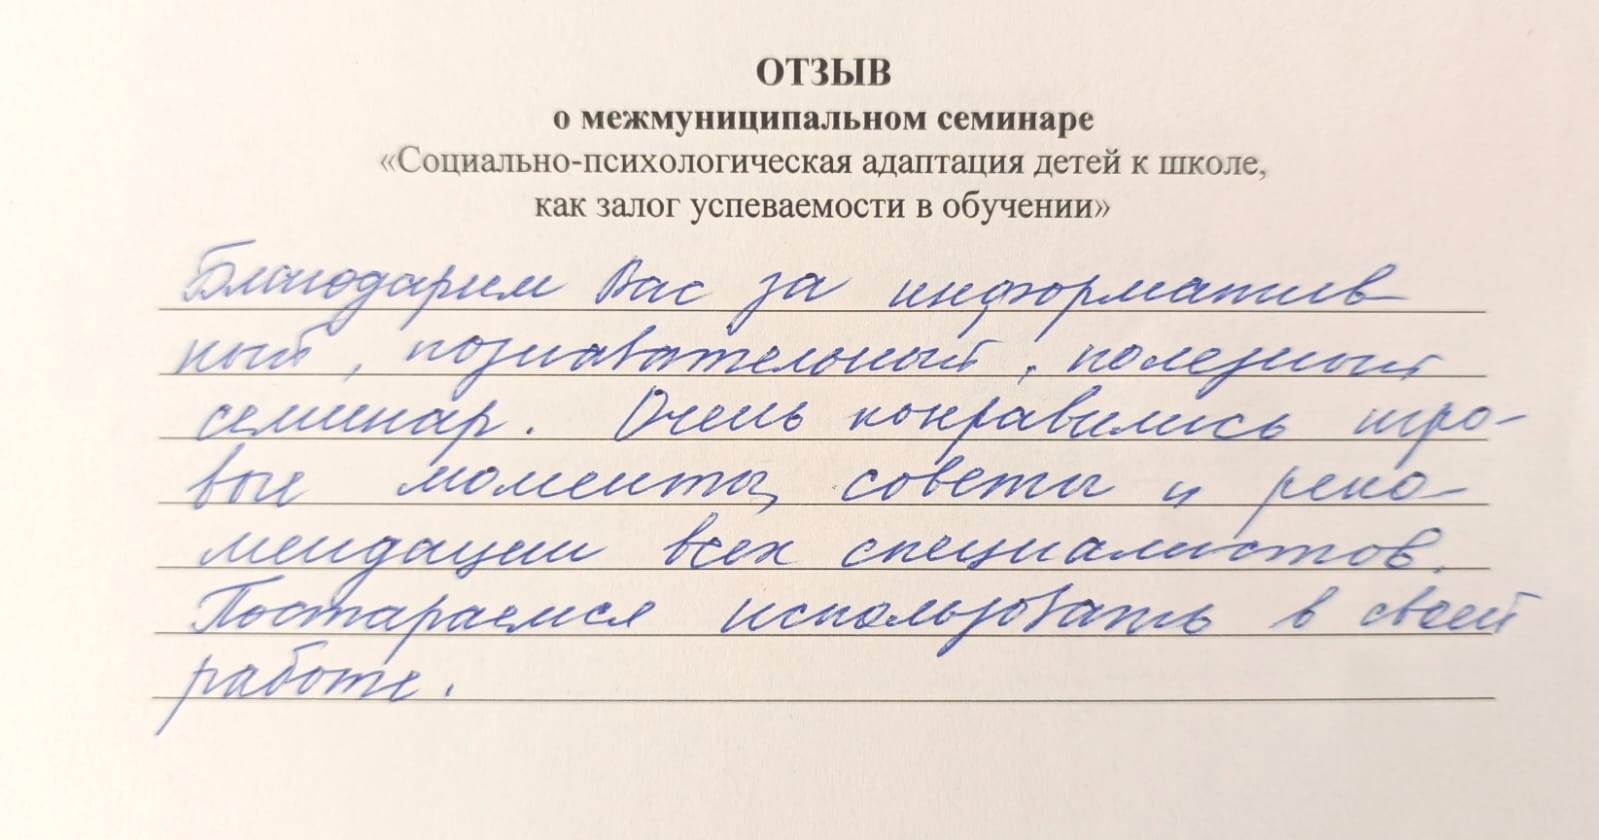 ОТЗЫВ
о межмуниципальном семинаре
«Социально-психологическая адаптация детей к школе,
как залог успеваемости в обучении»
Благодарим Вас за информатив
ный, познавательный, полезный
семинар. Очень понравились игро-
вые моменты, советы и реко-
мендации всех специалистов.
Постараемся использовать в своей
работе.